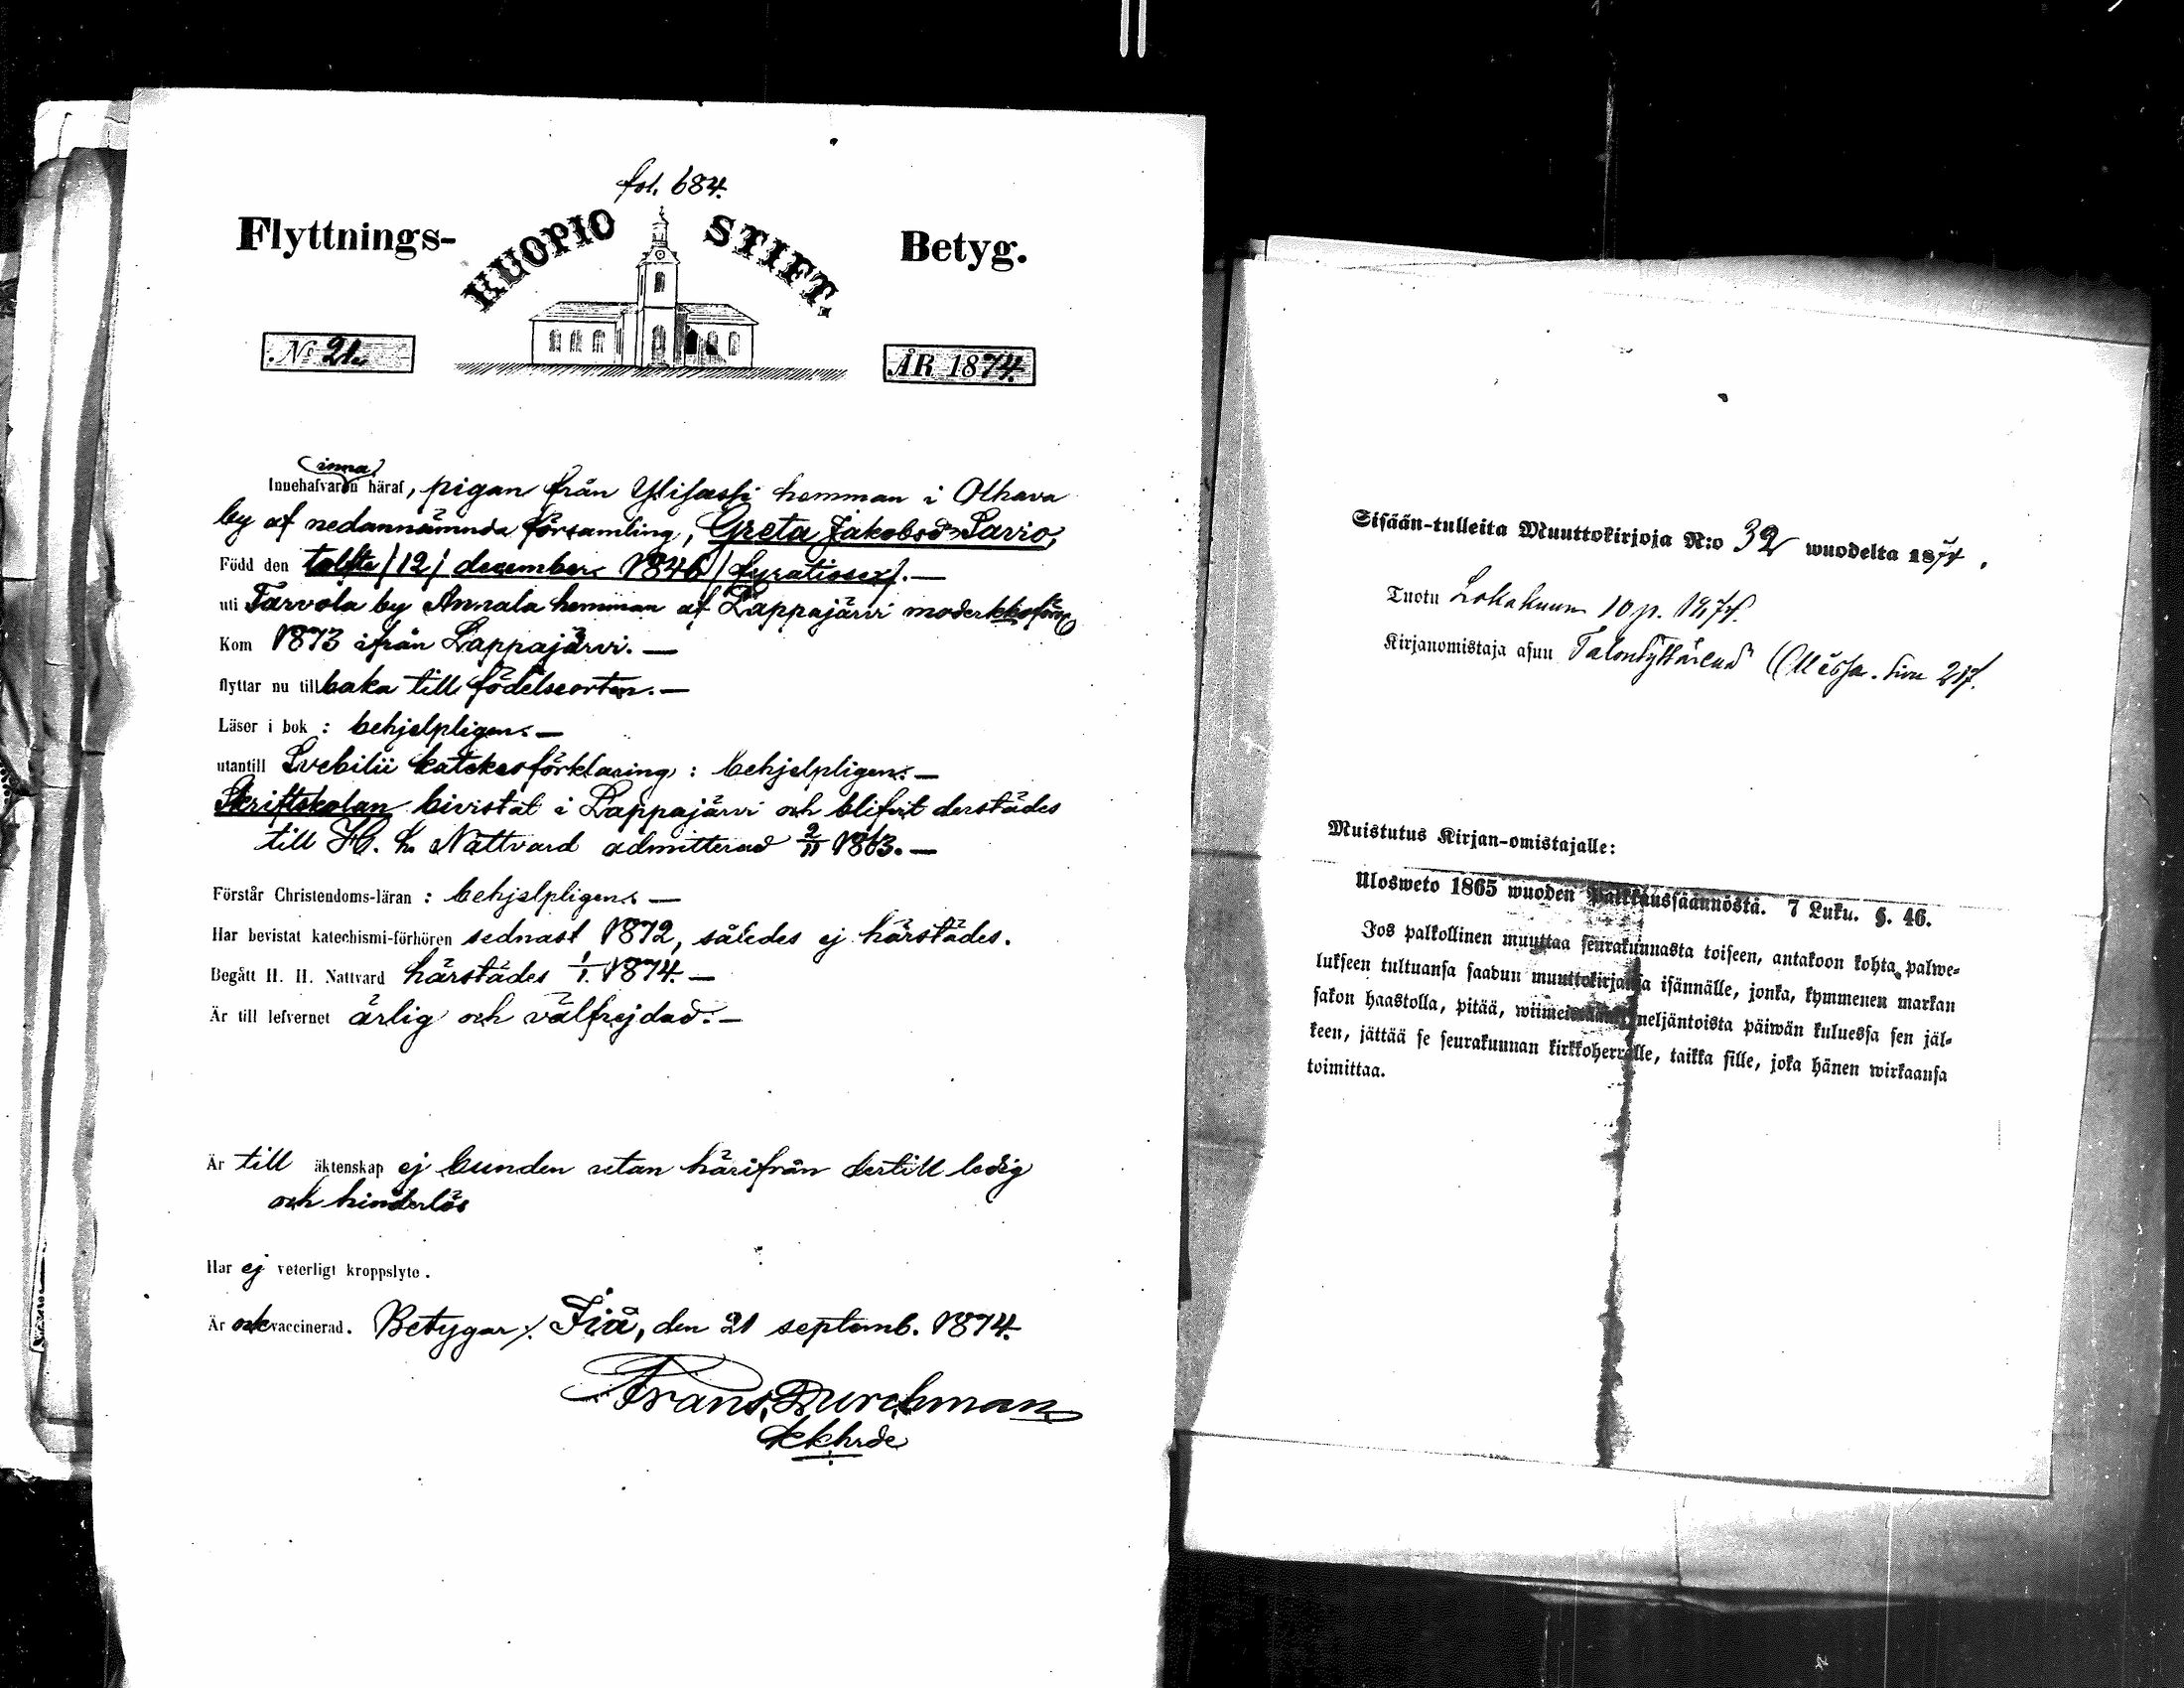 fol. 684.
Flyttnings-
KUOPIO STIFT.
Betyg.
№ 21.
ÅR 1874.
(inna)
Innehafvaren häraf, pigan från Ylisassi hemman i Olhava
by af nedannämnda församling, Greta Jakobsdr Sarvo,
Född den tolfte /12/ december 1846 /fyratiosex/. —
uti Tarvola by Annala hemman af Lappajärvi moderkkoförs
Kom 1873 ifrån Lappajärvi. —
flyttar nu tillbaka till födelseorten. —
Läser i bok : behjelpligen. —
utantill Svebilii katekesförklaring : behjelpligen. —
Skriftskolan bivistat i Lappajärvi och blifvit derstädes
till H. h. Nattvard admitterad 2/11 1863. —
Förstår Christendoms-läran : behjelpligen. —
Har bevistat katechismi-förhören sednast 1872, således ej härstädes.
Begått H. H. Nattvard härstädes 1/1 1874. —
Är till lefvernet ärlig och välfrejdad. —
Är till äktenskap ej bunden utan härifrån dertill ledig
och hinderlös
Har ej veterligt kroppslyte.
Är och vaccinerad. Betygar /. Iiå, den 21 septemb. 1874.
Frans Durchman
kkhrde
Sisään-tulleita Muuttokirjoja N:o 32 wuodelta 1874.
Tuotu Lokakuun 10 p. 1874.
Kirjanomistaja asuu Talontyttärenä siwu 217.
Muistutus Kirjan-omistajalle:
Ulosweto 1865 wuoden Palkkaussäännöstä. 7 Luku. §. 46.
Jos palkollinen muuttaa seurakunnasta toiseen, antakoon kohta palwe-
lukseen tultuansa saadun muuttokirjansa isännälle, jonka, kymmenen markan
sakon haastolla, pitää, wiimeistään neljäntoista päiwän kuluessa sen jäl-
keen, jättää se seurakunnan kirkkoherralle, taikka sille, joka hänen wirkaansa
toimittaa.